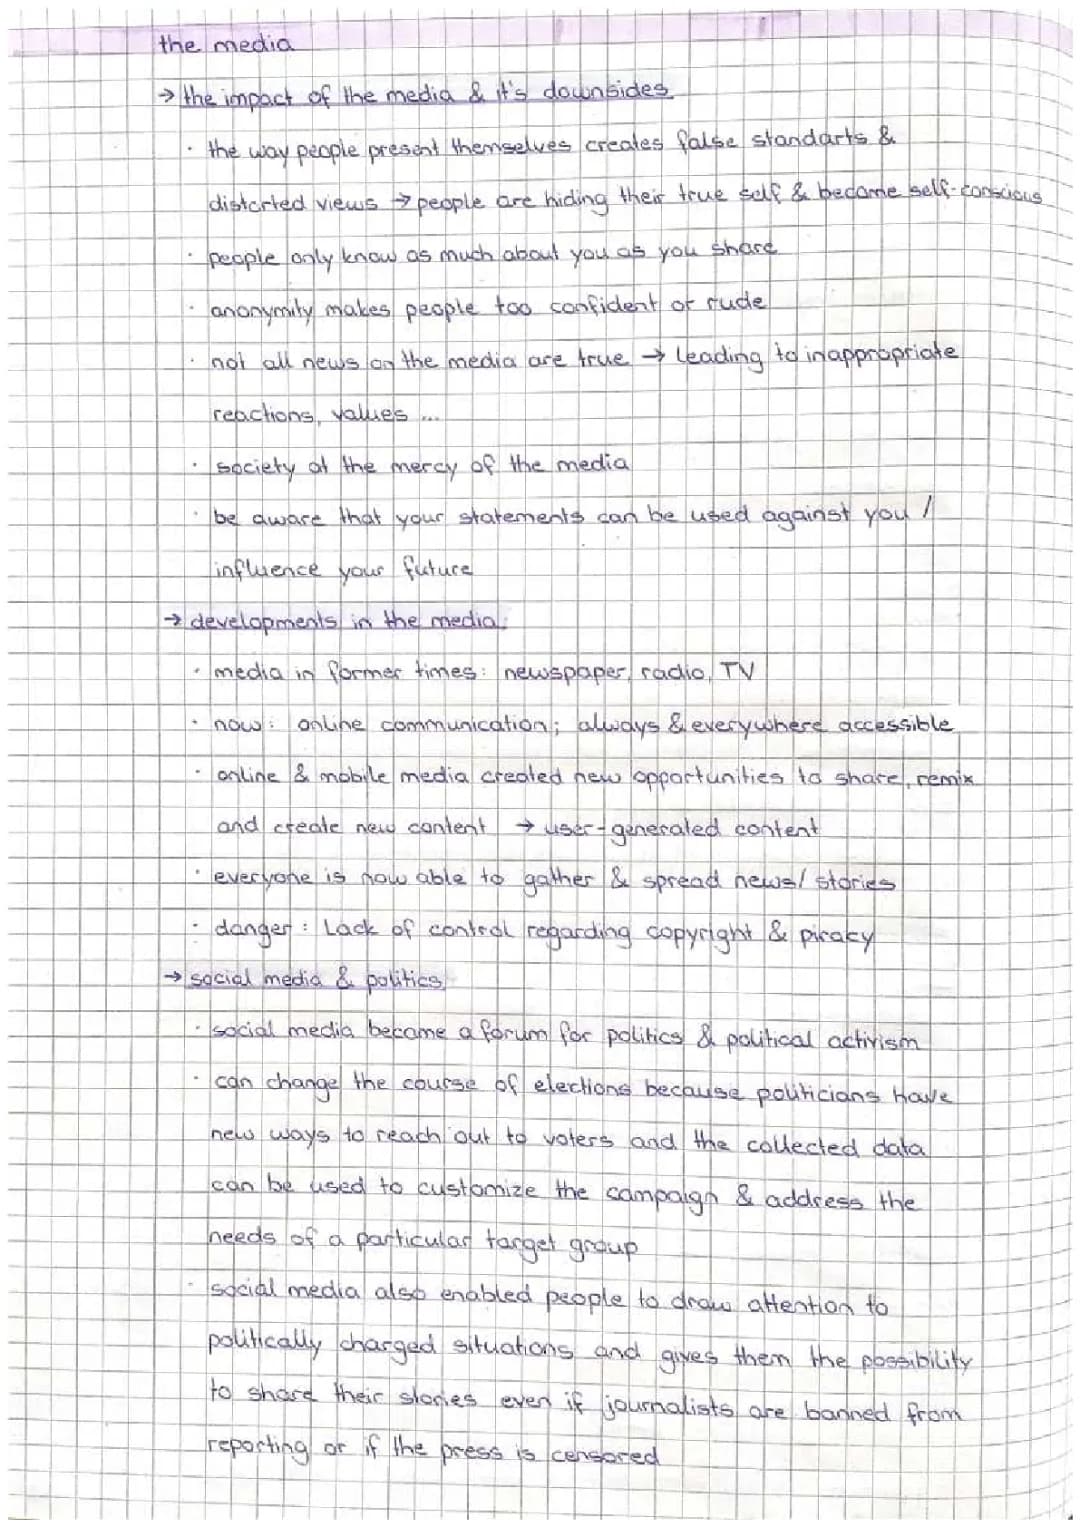 the media
→ the impact of the media & it's downsides
· the way people present themselves creates false standarts &
distorted views → people are hiding their true self & become self-conscious
· people only know as much about you as you share
· anonymity makes people too confident or rude
· not all news on the media are true → leading to inappropriate
reactions, values ...
· society at the mercy of the media
· be aware that your statements can be used against you /
influence your future
→ developments in the media:
· media in former times: newspaper, radio, TV
· now: online communication; always & everywhere accessible
· online & mobile media created new opportunities to share, remix
and create new content → user-generated content
· everyone is now able to gather & spread news/ stories
· danger: Lack of control regarding copyright & piracy
→ social media & politics
· social media became a forum for politics & political activism
· can change the course of elections because politicians have
new ways to reach out to voters and the collected data
can be used to customize the campaign & address the
needs of a particular target group
· social media also enabled people to draw attention to
politically charged situations and gives them the possibility
to share their stories even if journalists are banned from
reporting or if the press is censored